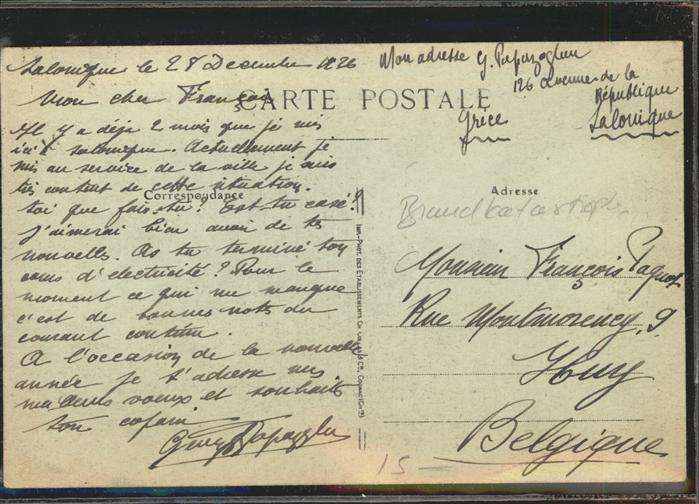 Salonique le 28 Decembre 1926
Mon cher François
CARTE POSTALE
Il y a déja 2 mois que je suis
ici à Salonique. Actuellement je
suis au service de la ville je suis
très content de cette situation.
Correspondance
toi que fais-tu? Est tu casé?
J'aimerai bien avoir de tes
nouvelles. As tu terminé ton
cours d'électricité? Pour le
moment ce qui me manque
c'est de bonnes nots du
courant continu.
A l'occasion de la nouvelle
année je t'adresse mes
meilleurs voeux et souhaits
ton copain
Papazoglu
Mon adresse G. Papazoglou
126 Avenue de la
République
Salonique
Grèce
Adresse
Brandkatastrophe
Monsieur François Paquot
Rue Montmorency, 9
Huy
Belgique
15